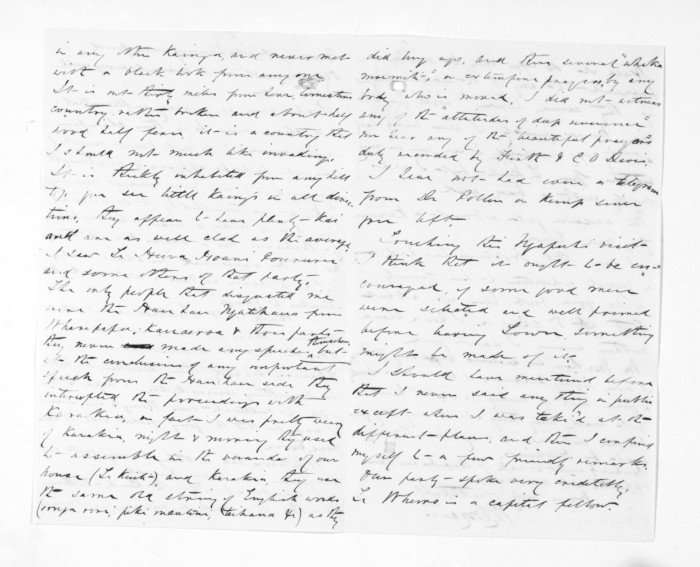 in any other Kainga, and never met
with a black look from any one.
It is not thirty miles from here,
country rather broken and about half
wood half fern it is a country that
I should not much like invading.
It is thickly inhabited from any hill
top you see little Kaingas in all direc
tions, they appear to have plenty Kai
and are as well clad as the average
I saw Te Hura, Hoani
and some others of that party.
The only people that disgusted me
were the Hau hau Ngatihaua from
Wharepapa, Kanaeroa & those parts
they never made any speeches themselves but
at the conclusion of any important
speech from the Hau hau side they
interrupted the proceedings with
Karakia, in fact I was pretty weary
of Karakia, night & morning they used
to assemble in the verandah of our
house (Te Kuiti) and Karakia, they use
the same old string of English words
(ronga rino, piki mautini, taihana &c) as they
did long ago, and then several "whaka
moemiti", or extempore prayers, by any
body who is moved. I did not witness
any of the "attitudes of deep reverence"
nor hear any of the "beautiful prayers"
duly recorded by & C O Davis.
I have not had even a telegram
from Dr Pollen or Kemp since
you left.
Touching this Ngapuhi visit
I think that it ought to be en-
couraged, if some good men
were selected and well primed
before having Lower something
might be made of it.
I should have mentioned before
that I never said any thing in public
except when I was taki'd at the
different places, and then I confined
myself to a few friendly remarks.
Our party spoke very creditably,
Te Wheoro is a capital fellow.